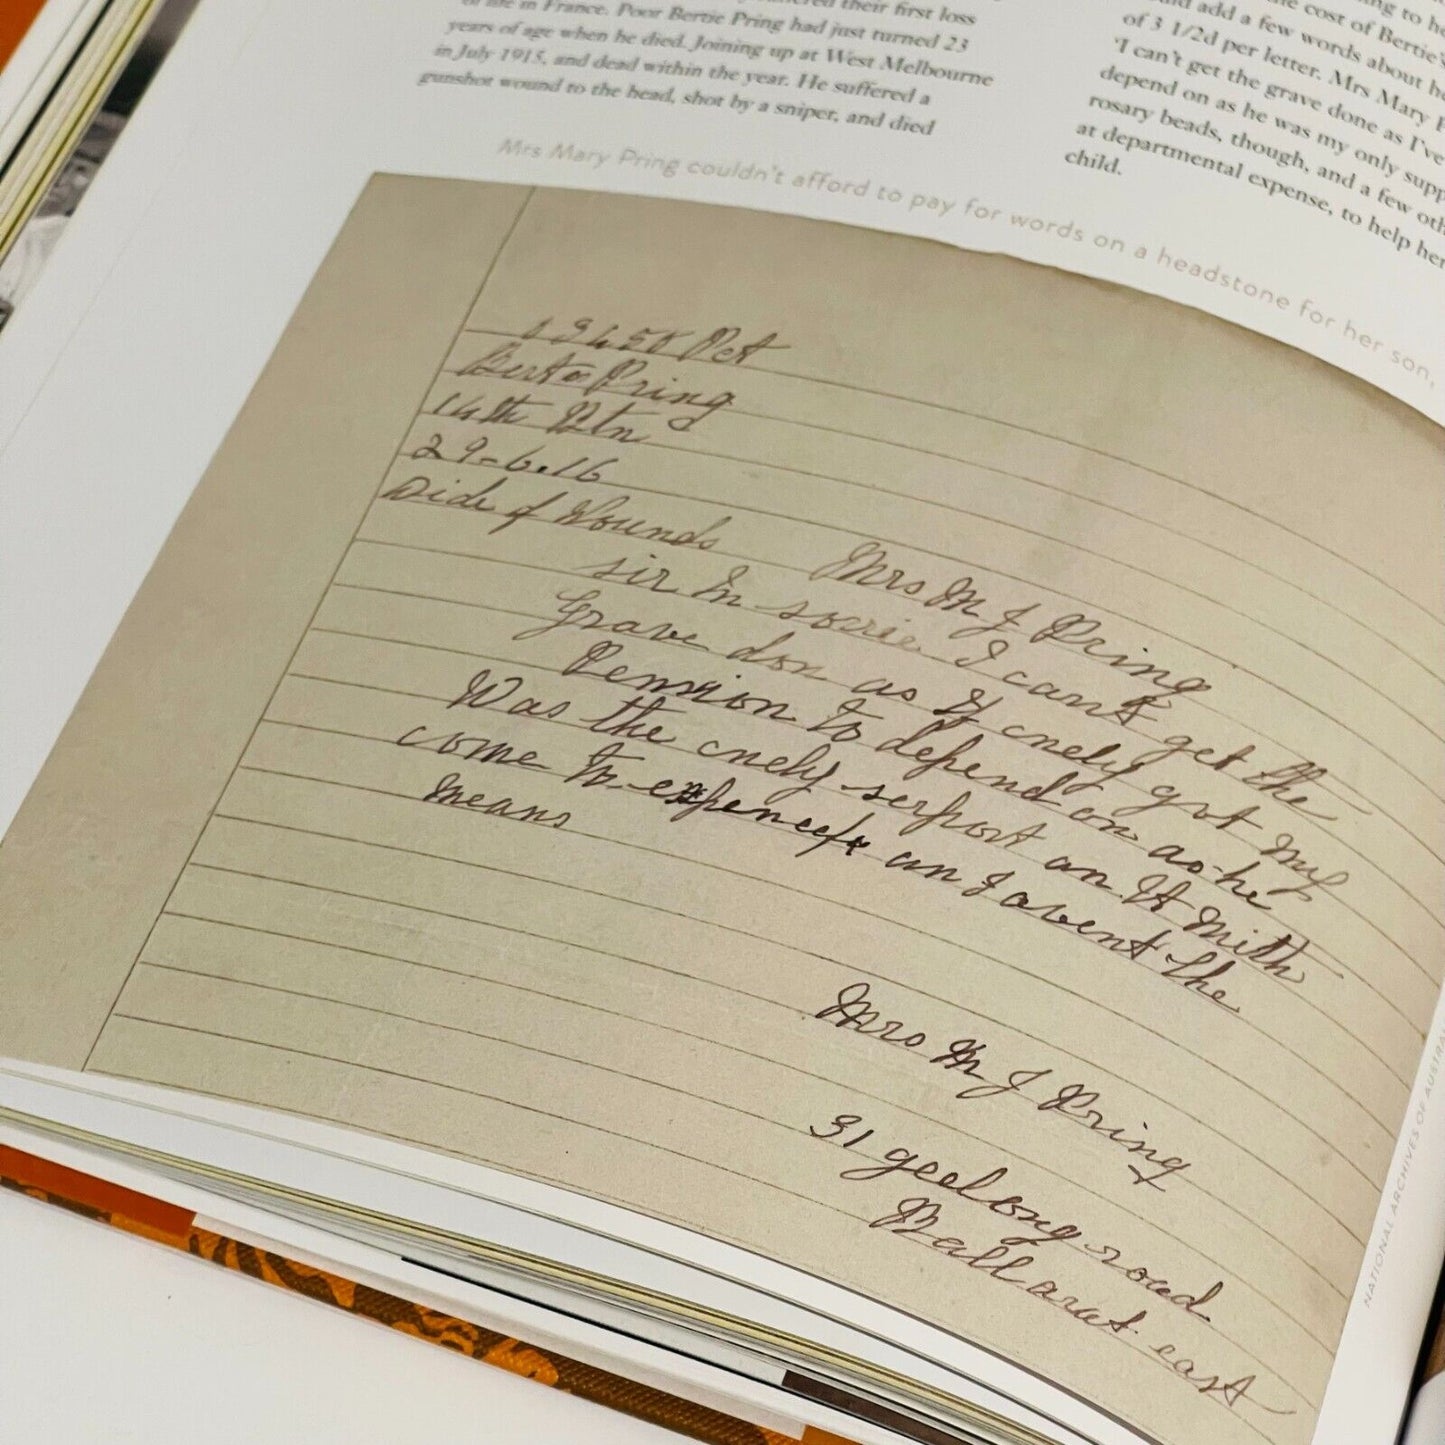 their first loss
of life in France. Poor Bertie Pring had just turned 23
years of age when he died. Joining up at West Melbourne
in July 1915, and dead within the year. He suffered a
gunshot wound to the head, shot by a sniper, and died
the cost of Bertie's
add a few words about
of 3 1/2d per letter. Mrs Mary
'I can't get the grave done as I've
depend on as he was my only
rosary beads, though, and a few
at departmental expense, to help her
child.
Mrs Mary Pring couldn't afford to pay for words on a headstone for her son,
Pring
14th Btn
29-6.16
Dide of Wounds
Mrs M J Pring
sir Im sorrie I cant get the
Grave don as I onely got my
Pension to depend on as he
Was the onely serport an It Mith
come to expence an I avent the
means
Mrs M J Pring
31 geelong road
Ballarat east
NATIONAL ARCHIVES OF